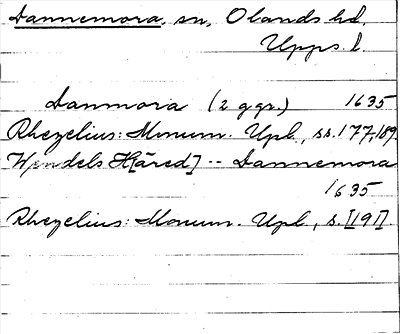 Dannemora, sn, Olands hd.
Upps. l.
Danmora (2 ggr.) 1635
Rhezelius: Monum. Upl., ss. 177, 189
Wendels H[äred] -- Dannemora
1635
Rhezelius: Monum. Upl, s. [191]